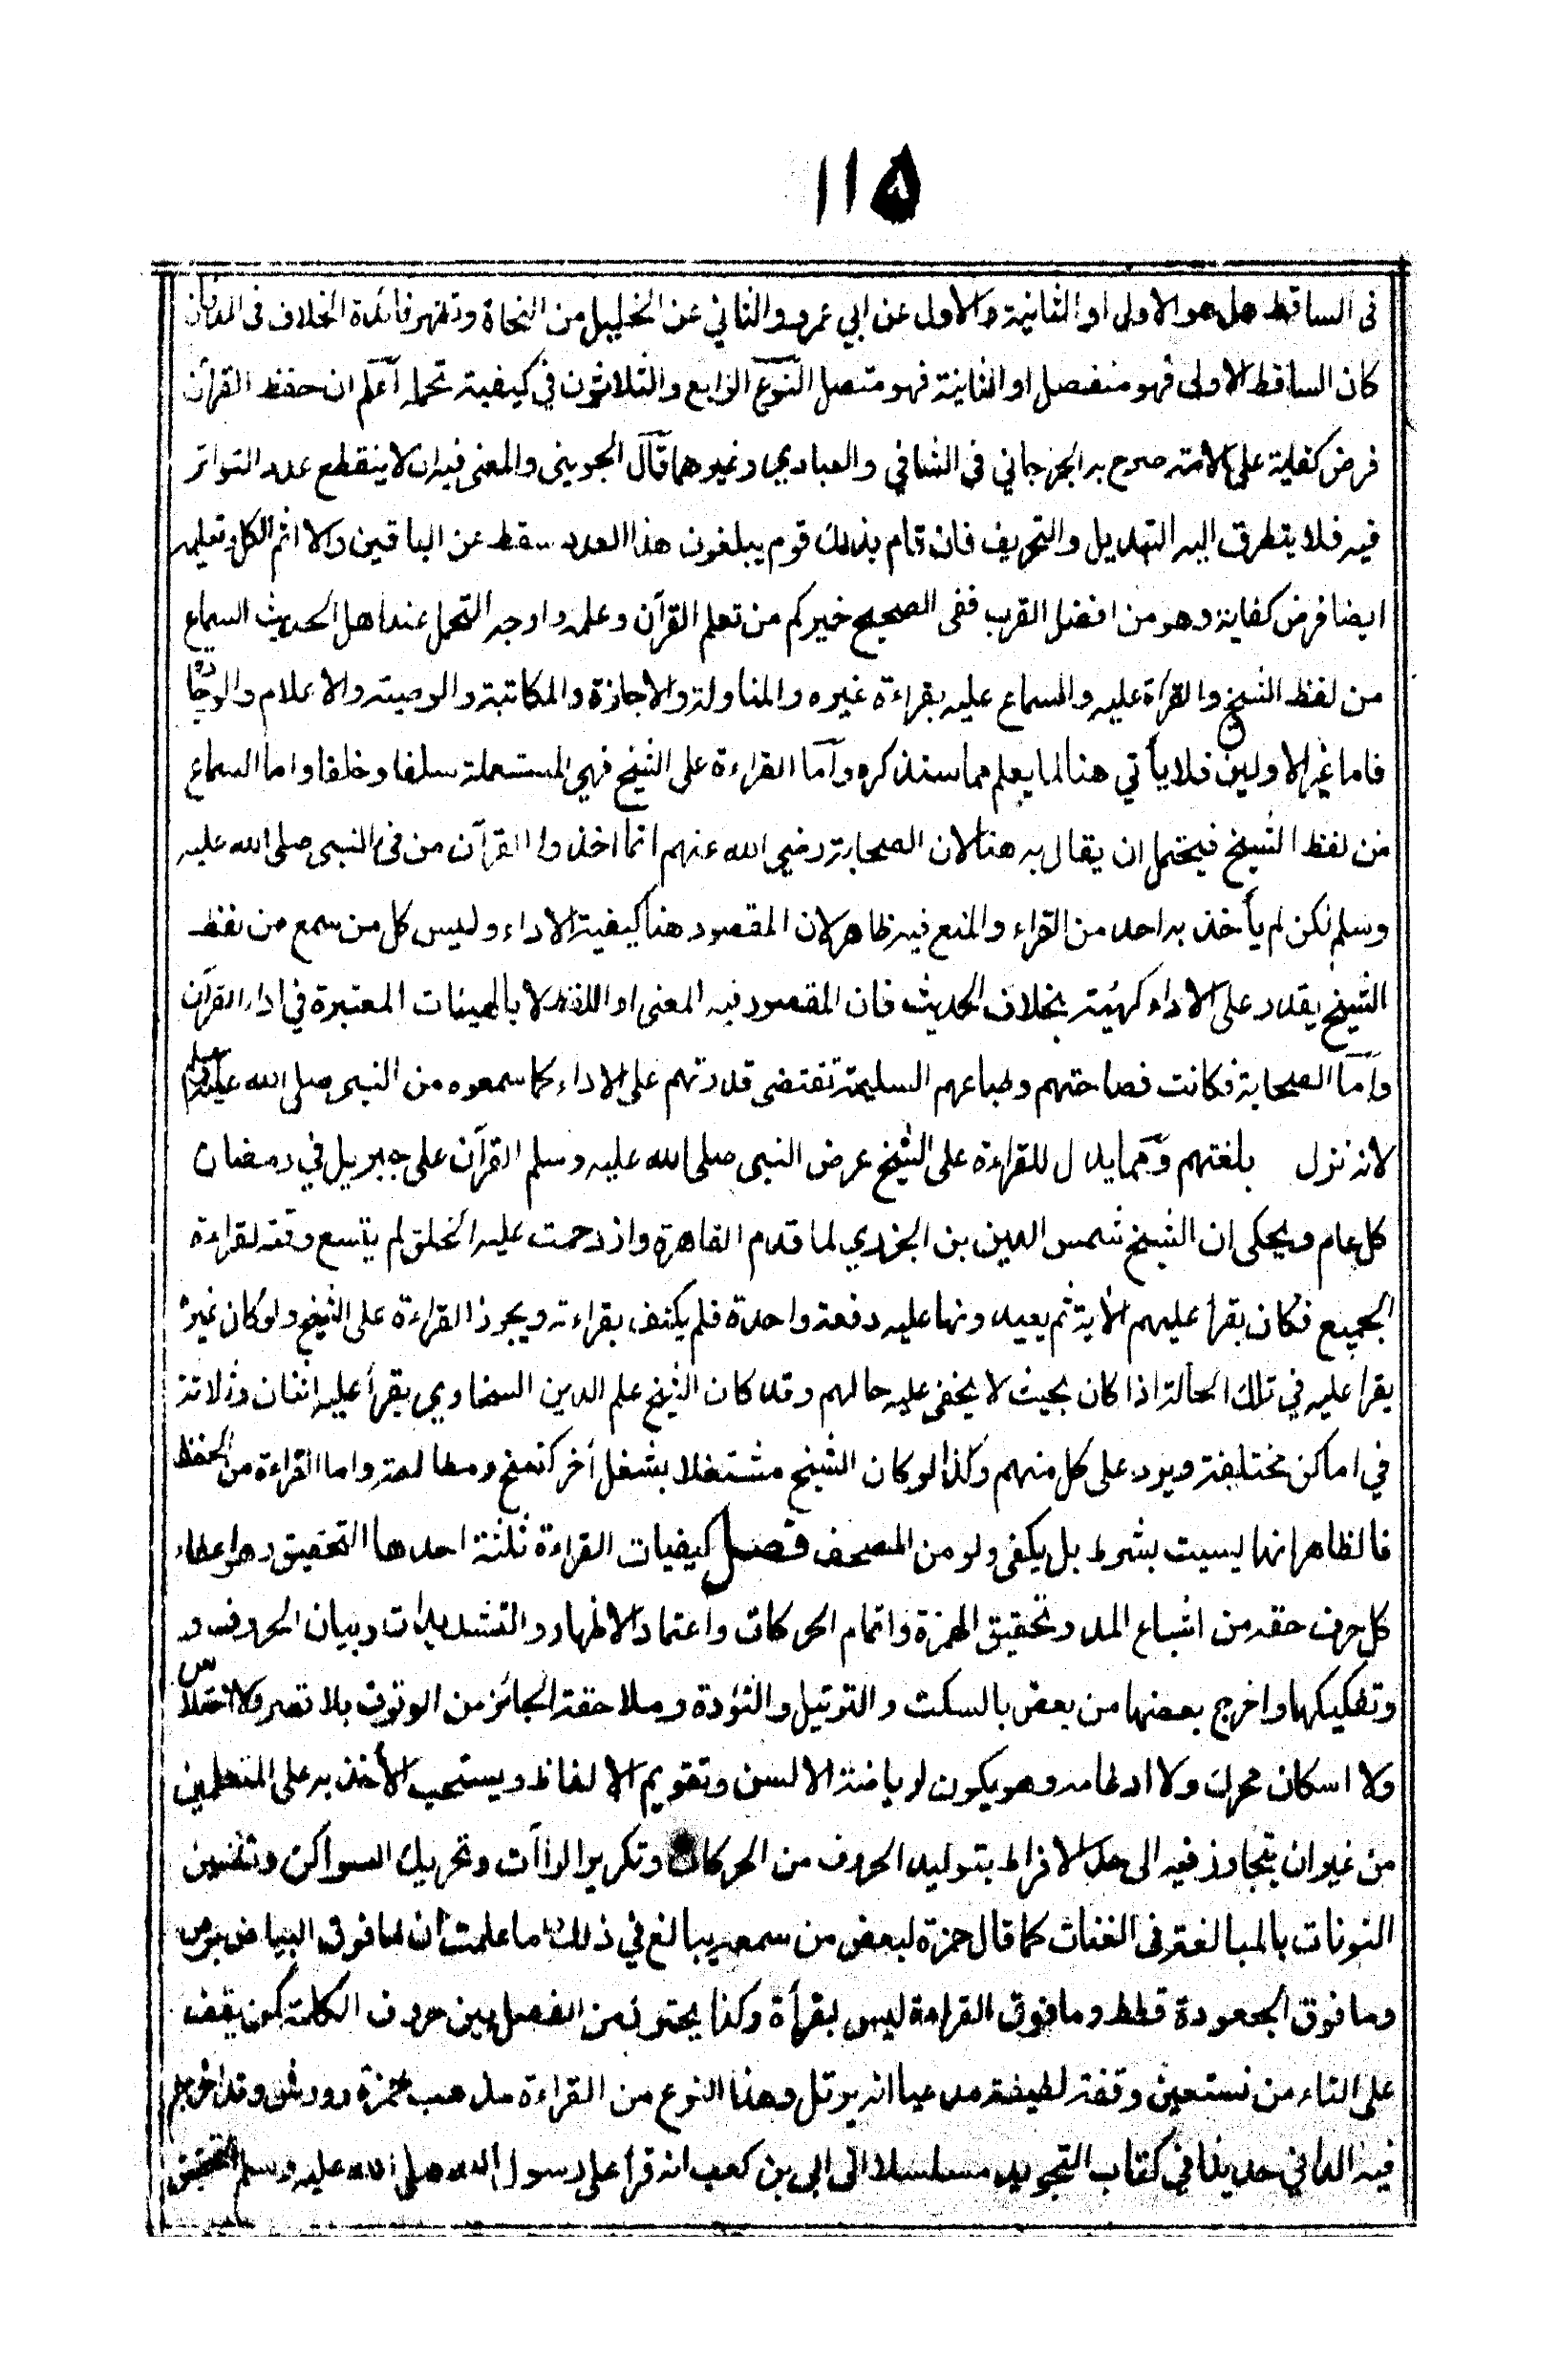 ١١٥
فى الساقط هل هو الاولى او الثانية والاول عن ابي عمرو والثاني عن الخليل من النحاة وتظهر فائدة الخلاف فى المد فان
كان الساقط الاولى فهو منفصل او الثانية فهو متصل النوع الرابع والثلاثون في كيفية تحمله اعلم ان حفظ القرآن
فرض كفاية على الامة صرح به الجرجاني في الشافي والعبادي وغيرهما قال الجويني والمعنى فيه ان لا ينقطع عدد التواتر
فيه فلا يتطرق اليه التبديل والتحريف فان قام بذلك قوم يبلغون هذا العدد سقط عن الباقين والا اثم الكل وتعليمه
ايضا فرض كفاية وهو من افضل القرب ففى الصحيح خيركم من تعلم القرآن وعلمه واوجه التحمل عند اهل الحديث السماع
من لفظ الشيخ والقراءة عليه والسماع عليه بقراءة غيره والمناولة والاجازة والمكاتبة والوصية والاعلام والوجادة
فاما غير الاولين فلا يأتي هنا لما يعلم مما سنذكره وأما القراءة على الشيخ فهي المستعملة سلفا وخلفا واما السماع
من لفظ الشيخ فيحتمل ان يقال به هنا لان الصحابة رضي الله عنهم انما اخذوا القرآن من فى النبى صلى الله عليه
وسلم لكن لم يأخذ به احد من القراء والمنع فيه ظاهر لان المقصود هنا كيفية الاداء وليس كل من سمع من لفظ
الشيخ يقدر على الاداء كهيئته بخلاف الحديث فان المقصود فيه المعنى او اللفظ لا بالهيئات المعتبرة في اداء القرآن
واما الصحابة فكانت فصاحتهم وطباعهم السليمة تقتضى قدرتهم على الاداء كما سمعوه من النبى صلى الله عليه وسلم
لانه نزل بلغتهم ومما يدل للقراءة على الشيخ عرض النبى صلى الله عليه وسلم القرآن على جبريل في رمضان
كل عام ويحكى ان الشيخ شمس الدين بن الجزري لما قدم القاهرة وازدحمت عليه الخلق لم يتسع وقته لقراءة
الجميع فكان يقرأ عليهم الآية ثم يعيدونها عليه دفعة واحدة فلم يكتف بقراءته ويجوز القراءة على الشيخ ولو كان غيره
يقرا عليه في تلك الحالة اذا كان بحيث لا يخفى عليه حالهم وقد كان الشيخ علم الدين السخاوي يقرأ عليه اثنان وثلاثة
في اماكن مختلفة ويرد على كل منهم وكذا لو كان الشيخ مشتغلا بشغل آخر كنسخ ومطالعة واما القراءة من الحفظ
فالظاهر انها ليست بشرط بل يكفى ولو من المصحف فصل كيفيات القراءة ثلثة احدها التحقيق وهو اعطاء
كل حرف حقه من اشباع المد وتحقيق الهمزة واتمام الحركات واعتماد الاظهار والتشديدات وبيان الحروف و
وتفكيكها واخرج بعضها من بعض بالسكت والترتيل والتؤدة وملاحظة الجائز من الوقوف بلا قصر ولا اختلاس
ولا اسكان محرك ولا ادغامه وهو يكون لرياضة الالسن وتقويم الالفاظ ويستحب الأخذ به على المتعلمين
من غير ان يتجاوز فيه الى حد الافراط بتوليد الحروف من الحركات وتكرير الراآت وتحريك السواكن وتطنين
النونات بالمبالغة فى الغنات كما قال حمزة لبعض من سمعه يبالغ في ذلك اما علمت أن ما فوق البياض برص
وما فوق الجعودة قطط وما فوق القراءة ليس بقرأة وكذا يحترز من الفصل بين حروف الكلمة كمن يقف
على التاء من نستعين وقفة لطيفة مدعيا انه يرتل وهذا النوع من القراءة مذهب حمزة وورش وقد اخرج
فيه الداني حديثا في كتاب التجويد مسلسلا الى ابى بن كعب انه قرأ على رسول الله صلى الله عليه وسلم التحقيق